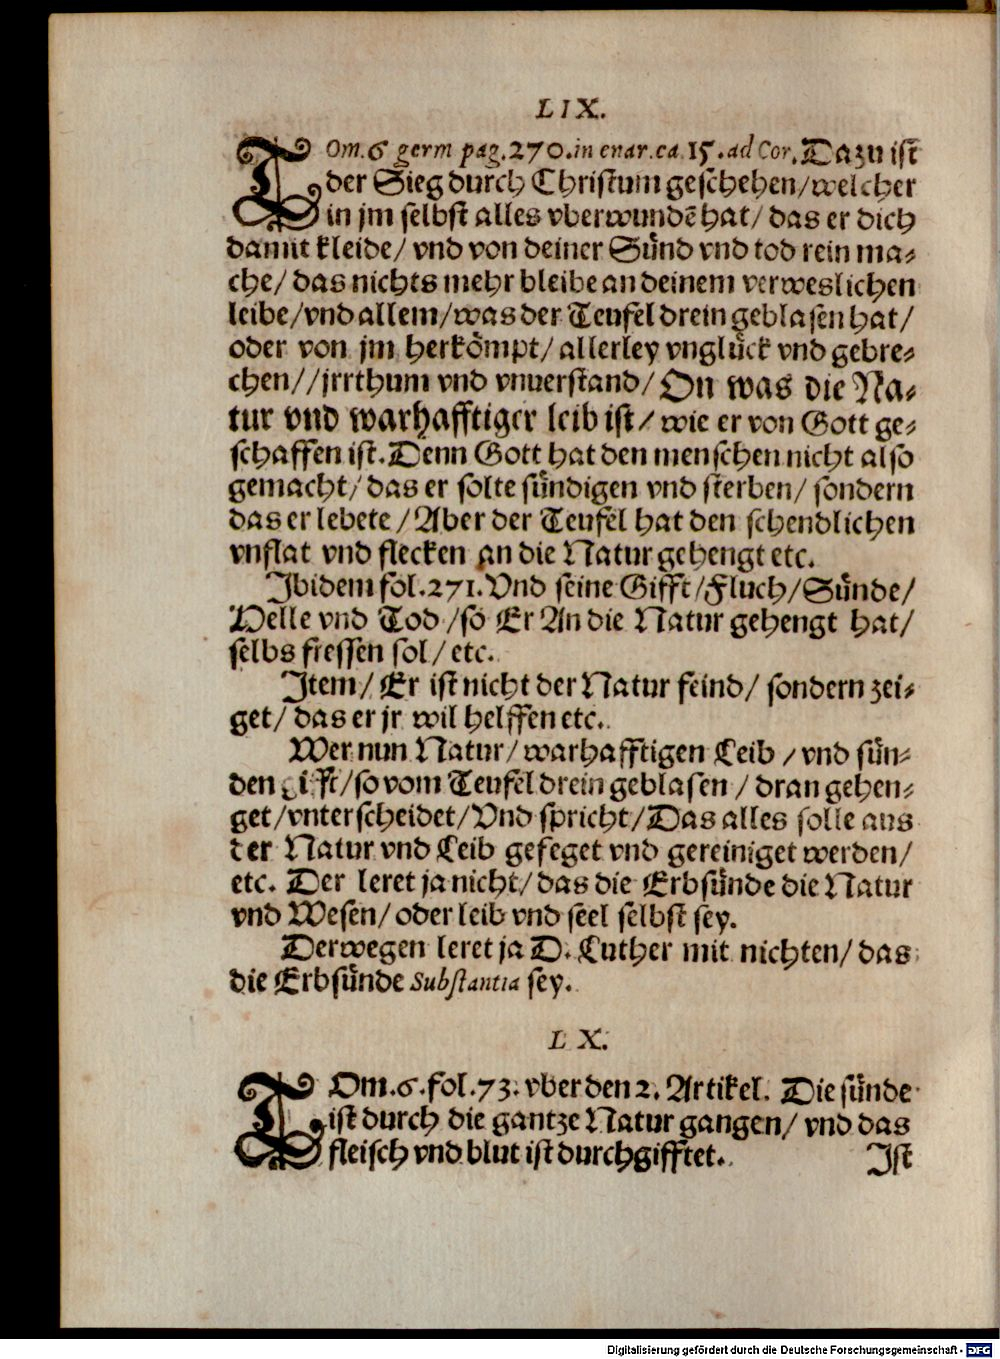 LIX.
TOm. 6 germ pag. 270. in enar. ca. 15. ad Cor. Dazu ist
der Sieg durch Christum geschehen/ welcher
in jm selbst alles vberwundē hat/ das er dich
damit kleide/ vnd von deiner Sünd vnd tod rein ma-
che/ das nichts mehr bleibe an deinem verweslichen
leibe/ vnd allem/ was der Teufel drein geblasen hat/
oder von jm herkömpt/ allerley vnglück vnd gebre-
chen// jrrthum vnd vnuerstand/ On was die Na-
tur vnd warhafftiger leib ist/ wie er von Gott ge-
schaffen ist. Denn Gott hat den menschen nicht also
gemacht/ das er solte sündigen vnd sterben/ sondern
das er lebete/ Aber der Teufel hat den schendlichen
vnflat vnd flecken an die Natur gehengt etc.
Jbidem fol. 271. Vnd seine Gifft/ Fluch/ Sünde/
Helle vnd Tod/ so Er An die Natur gehengt hat/
selbs fressen sol/ etc.
Jtem/ Er ist nicht der Natur feind/ sondern zei-
get/ das er jr wil helffen etc.
Wer nun Natur/ warhafftigen Leib/ vnd sün-
den gifft/ so vom Teufel drein geblasen/ dran gehen-
get/ vnterscheidet/ Vnd spricht/ Das alles solle aus
der Natur vnd Leib gefeget vnd gereiniget werden/
etc. Der leret ja nicht/ das die Erbsünde die Natur
vnd Wesen/ oder leib vnd seel selbst sey.
Derwegen leret ja D. Luther mit nichten/ das
die Erbsünde Substantia sey.
LX.
TOm. 6. fol. 73. vber den 2. Artikel. Die sünde
ist durch die gantze Natur gangen/ vnd das
fleisch vnd blut ist durchgifftet.
Jst
Digitalisierung gefördert durch die Deutsche Forschungsgemeinschaft - DFG